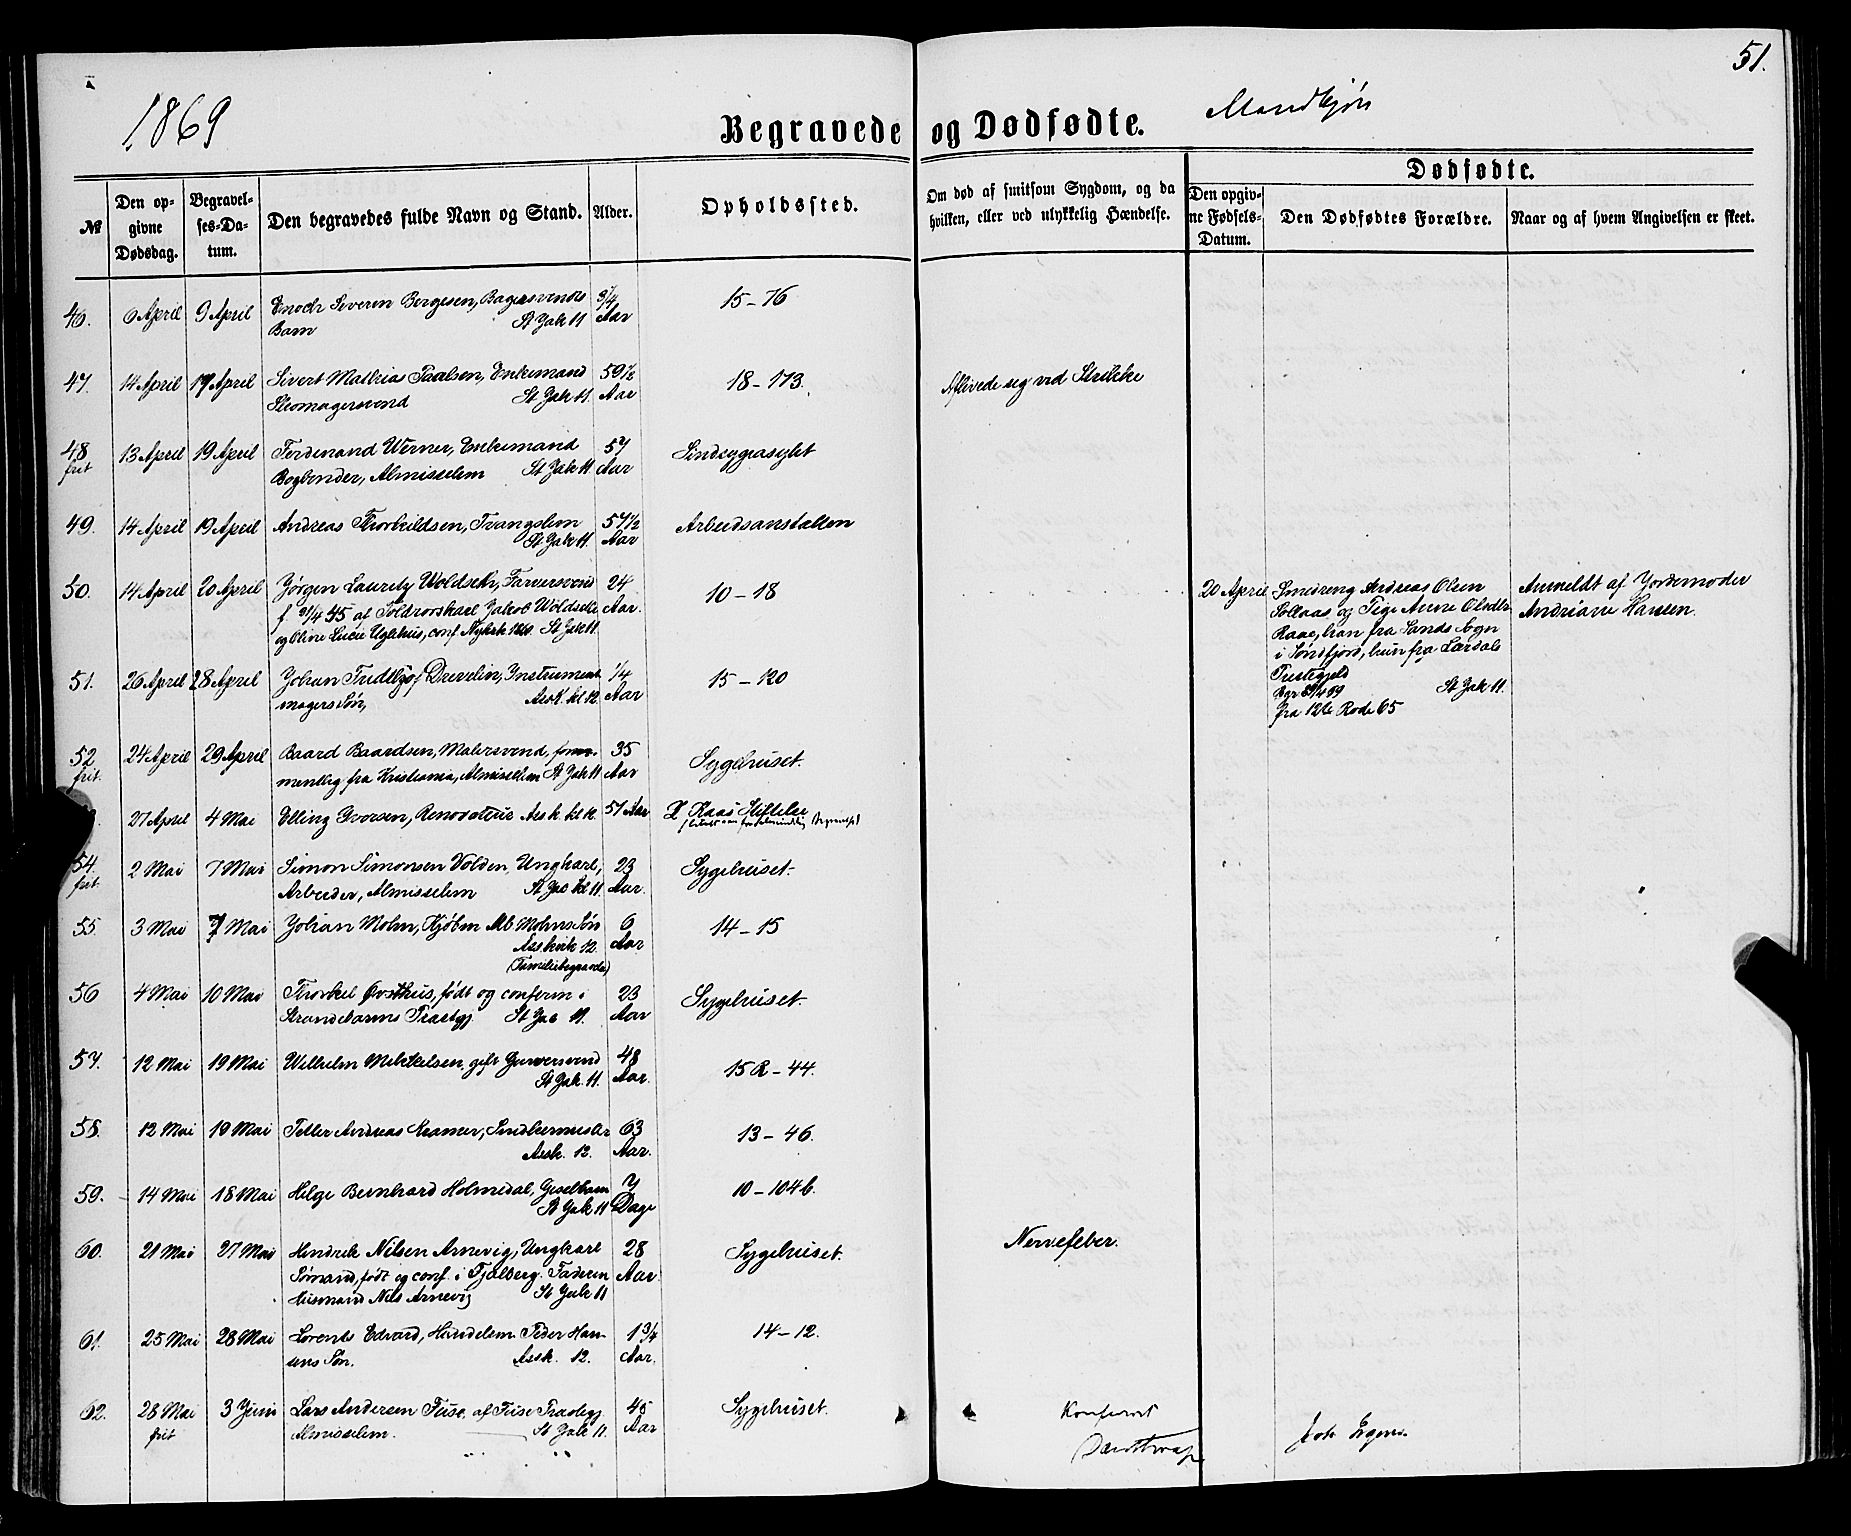 51.
1869
Begravede og Dødfødte.
Mandkjøn
№
Den opgivne Dødsdag.
Begravelses-Datum.
Den begravedes fulde Navn og Stand.
Alder.
Opholdssted.
Om død af smitsom Sygdom, og da hvilken, eller ved ulykkelig Hændelse.
Dødfødte.
Den opgivne Fødsels-Datum.
Den Dødfødtes Forældre.
Naar og af hvem Angivelsen er skeet.
46. 6 April 9 April Enoch Severin Børgesen, Bagersvends 3/4 15-76
Barn St Jak 11 Aar
47. 14 April 17 April Sivert Mathias Paulsen, Enkemand 59 1/2 18-173. Aflivede seg ved Strikke
Skomagersvend St Jak 11. Aar
48 13 April 19 April Ferdinand Werner, Enkemand 57 Sindsygeasylet
frit Bogbinder, Almisselem St Jak 11 Aar
49. 14 April 19 April Andreas Thorkildsen, Tvangslem 57 1/2 Arbeidsanstalten
St Jak 11. Aar
50. 14 April 20 April Jørgen Lauretz Woldseth, Farversvend 24 10-18
f 21/4 45 af Toldrorskarl Jakob Woldseth Aar.
og Oline Lucie Uglehus, conf Nykirk 1860 St Jak 11.
20 April Smedreng Andreas Olsen Anmeldt af Jordemoder
Solaas og Pige Anne Olsdtr Andriane Hansen.
Raae, han fra Sands Sogn
i Søndfjord, hun fra Lærdals
Præstegjeld
St Jak 11.
fra 12te Rode 65
51. 26 April 28 April Johan Fridthjof Drevelin, Instrument 1/4 15-120
magers Søn, Assk. kl 12. Aar
52 24 April 29 April Baard Baardsen, Malersvend, formentlig 35 Sygehuset.
frit. fra Kristiania, Almisselem St Jak 11 Aar
27 April 4 Mai Elling Iversen, Renovatør Assk kl 12. 57 Aar D. Kaas Stiftelse
54. 2 Mai 7 Mai Simon Simonsen Volden, Ungkarl, 23 Sygehuset.
frit. Arbeider, Almisselem St Jac kl 11. Aar.
55 3 Mai 7 Mai Johan Mohn, Kjøbm Alb Mohns Søn 6 14-15
Asskirk 12. Aar
(Familiebegravelse)
56 4 Mai 10 Mai Thorkel Østhus, født og conferm i 23 Sygehuset.
Strandebarms Præstgj. St Jac 11. Aar
57. 12 Mai 19 Mai Wilhelm Mikkelsen, gift Garversvend 48 15 R-44.
St Jak. 11. Aar.
58. 12 Mai 19 Mai Peter Andreas Kramer, Snedkermester 63 13-46.
Assk. 12. Aar.
59. 14 Mai 18 Mai Helge Bernhard Holmedal, Geselbarn 7 10-104 b.
St Jak 11 Dage
60. 21 Mai 27 Mai Hendrik Nilsen Arnevig, Ungkarl 28 Sygehuset. Nervefeber.
Sømand, født og conf. i Fjelberg. Faderen Aar.
Husmand Nils Arnevig St Jak 11
61. 25 Mai 28 Mai Lorents Edvard, Hindelem Peder Han- 1 3/4 14-12.
sens Søn. Assk. 12. Aar.
62. 28 Mai 3 Juni Lars Andersen Fuse, af Fuse Præstegj. 45 Sygehuset.
frit Almisselem. St Jak 11. Aar
Konfereret